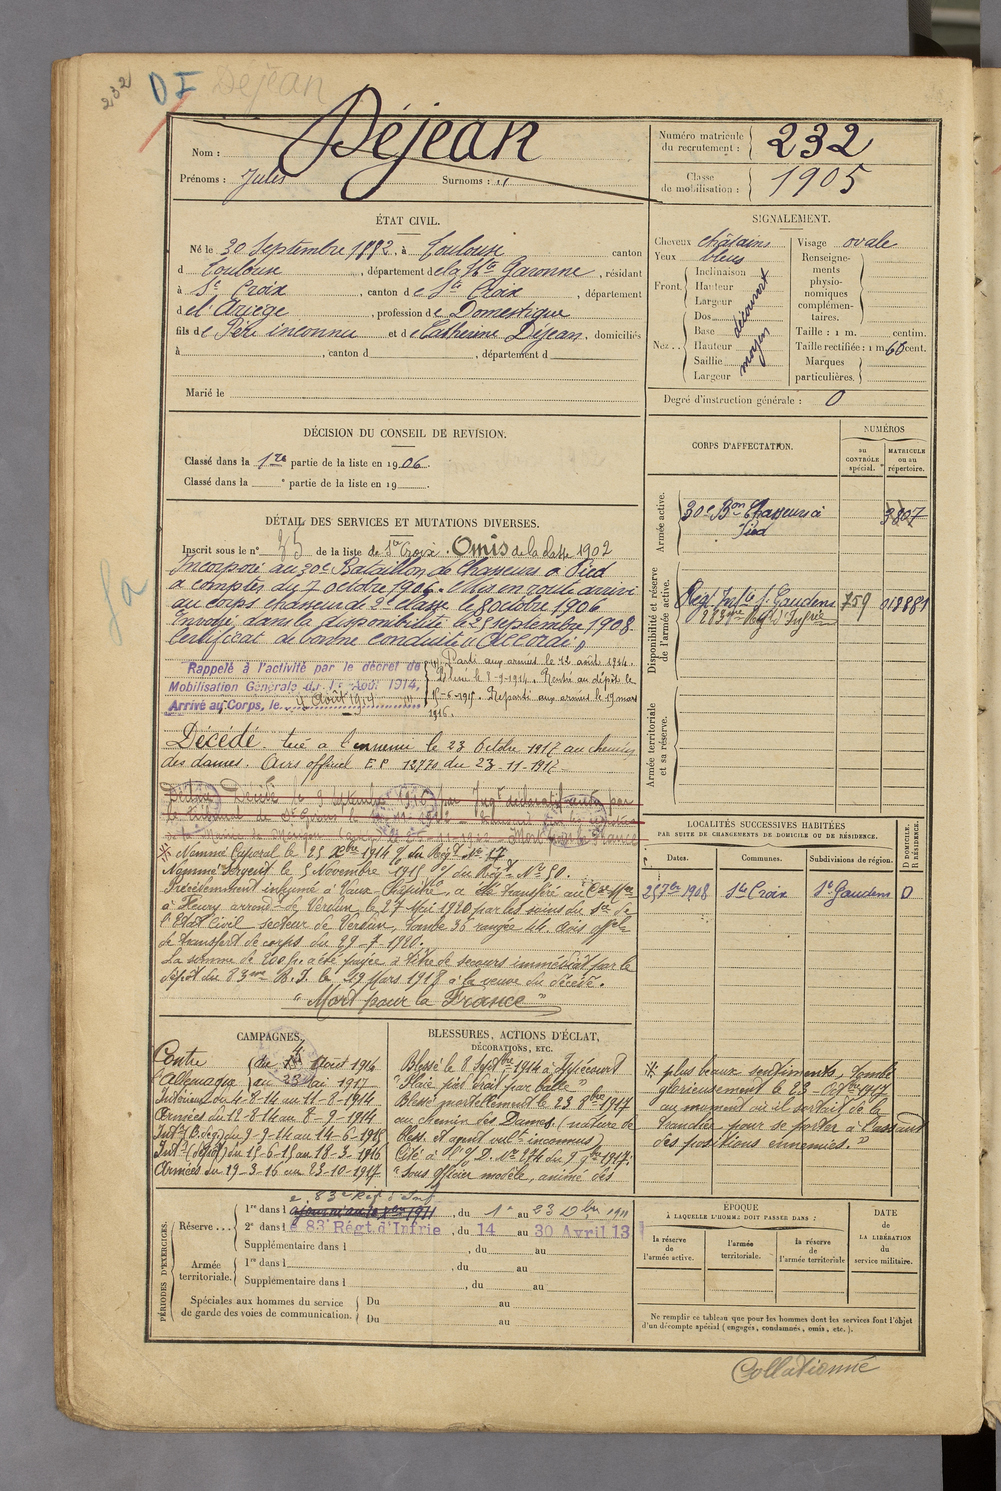 232
DI Dejean
Nom : Déjean
Prénoms : Jules Surnoms : "
Numéro matricule du recrutement : 232
Classe de mobilisation : 1905
ÉTAT CIVIL.
Né le 30 Septembre 1882, à Toulouse canton
d Toulouse, département de la Hte Garonne, résidant
à Ste Croix, canton de Ste Croix, département
d el Ariège, profession de Domestique
fils de Père inconnu et de Catherine Dejean, domiciliés
à , canton d , département d
Marié le
SIGNALEMENT.
Cheveux châtains
Yeux bleus
Front. Inclinaison
Hauteur
Largeur
découvert
Nez.. Dos
Base
Hauteur
Saillie
Largeur
moyen
Visage ovale
Renseignements physionomiques complémentaires.
Taille : 1 m. centim.
Taille rectifiée : 1 m 60 cent.
Marques particulières.
Degré d'instruction générale : 0
DÉCISION DU CONSEIL DE REVISION.
Classé dans la 1re partie de la liste en 1906.
Classé dans la e partie de la liste en 19
DÉTAIL DES SERVICES ET MUTATIONS DIVERSES.
Inscrit sous le n° 25 de la liste de Ste Croix. Omis de la classe 1902
Incorporé au 30e Bataillon de Chasseurs à Pied
à compter du 7 octobre 1906. Mis en route arrivé
au corps chasseur de 2e classe le 8 octobre 1906
Envoyé dans la disponibilité le 25 septembre 1908
Certificat de bonne conduite "Accordé"
Rappelé à l'activité par le décret de
Mobilisation Générale du 1er Août 1914,
Arrivé au Corps, le 4 Août 1914
Parti aux armées le 12 août 1914.
Blessé le 8-9-1914. Rentré au dépôt le
15-6-1915. Reparti aux armées le 19 mars
1916.
Décédé. tué à l'ennemi le 23 Octobre 1917 au chemin
des dames. Avis officiel E P 12773 du 23-11-1917
※ Nommé Caporal le 25 Xbre 1914 O/ du Régt N° 17
Nommé Sergent le 5 Novembre 1915 O/ du Régt N° 50.
Précédemment inhumé à Vaux-Chapitre, a été transféré au
à Fleury arrond. de Verdun, le 27 Mai 1920 par les soins du Sce de
l'État Civil secteur de Verdun, tombe 36 rangée 44. Avis offel
de transfert de corps du 29-7-1920.
La somme de 200 fr. a été payée à titre de secours immédiat par le
dépôt du 83me R.I. le 29 Mars 1918 à la veuve du décédé.
"Mort pour la France"
CORPS D'AFFECTATION.
NUMÉROS
au CONTRÔLE spécial.
MATRICULE ou au répertoire.
Armée active.
30e Bon Chasseurs à Pied
3807
Disponibilité et réserve de l'armée active.
Régt Infie St Gaudens 759 012881
283me Régt d'Infrie
Armée territoriale et sa réserve.
LOCALITÉS SUCCESSIVES HABITÉES
PAR SUITE DE CHANGEMENTS DE DOMICILE OU DE RÉSIDENCE.
Dates. Communes. Subdivisions de région. D DOMICILE. R RÉSIDENCE.
25 7bre 1908 Ste Croix St Gaudens D
CAMPAGNES
Contre l'Allemagne
du 4 Août 1914
au 23
Intérieur du 4-8-14 au 11-8-1914
Armées du 12-8-14 au 8-9-1914
du 9-9-14 au 14-6-1915
Intr (dépôt) du 15-6-15 au 18-3-1916
Armées du 19-3-16 au 23-10-1917
BLESSURES, ACTIONS D'ÉCLAT,
DÉCORATIONS, ETC.
Blessé le 8 Septbre 1914 à
"Plaie pied droit par balle"
Blessé mortellement le 23 8bre 1917
au chemin des Dames. (nature de
bless. et agent vult inconnus)
Cité à l'O/ D. N° 274 du 9 9bre 1917.
"Sous officier modèle, animé des
※ plus beaux sentiments, tombé
glorieusement le 23
au moment où il sortait de la
tranchée pour se porter à l'assaut
des positions ennemies."
PÉRIODES D'EXERCICES.
Réserve... 1re dans l e 83e Régt d'Inf, du 1er au 23 1911
2e dans l e 83e Régt. d'Infrie, du 14 au 30 Avril 13
Supplémentaire dans l , du au
Armée territoriale. 1re dans l , du au
Supplémentaire dans l , du au
Spéciales aux hommes du service de garde des voies de communication. Du au
Du au
ÉPOQUE
À LAQUELLE L'HOMME DOIT PASSER DANS :
la réserve de l'armée active.
l'armée territoriale.
la réserve de l'armée territoriale
DATE de LA LIBÉRATION du service militaire.
Ne remplir ce tableau que pour les hommes dont les services font l'objet
d'un décompte spécial (engagés, condamnés, omis, etc.).
Collationné